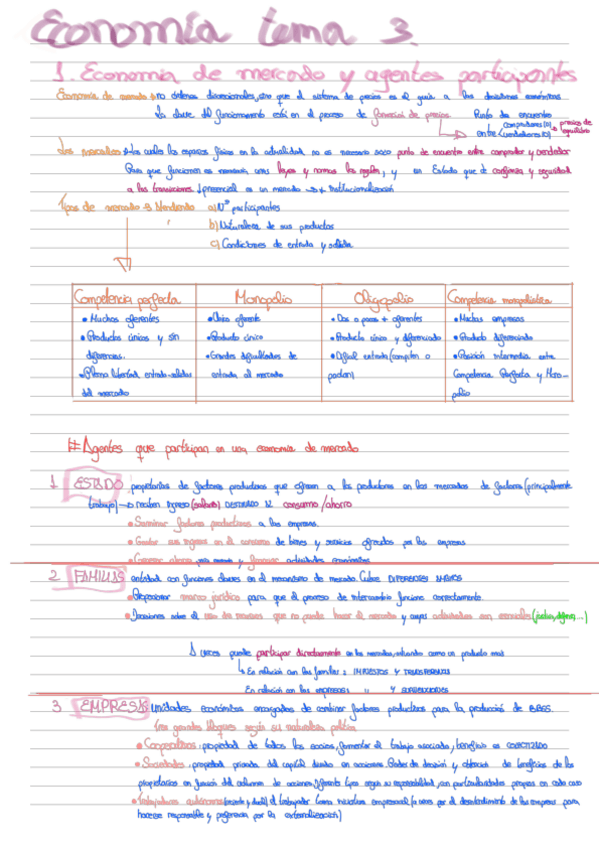 Economía tema 3.
1. Economía de mercado y agentes participantes
Economía de mercado no órdenes direccionales, sino que el sistema de precios es el guía a las decisiones económicas
La clave del funcionamiento está en el proceso de formación de precios. Punto de encuentro
entre compradores (D) vendedores (O) precios de equilibrio
Los mercados los cuales los espacios físicos en la actualidad no es necesario punto de encuentro entre comprador y vendedor
Para que funcionen es necesario unas leyes y normas los regulen, y un Estado que dé confianza y seguridad
a las transacciones. presencial es un mercado Institucionalización
Tipos de mercado a) Nº participantes
b) Naturaleza de sus productos
c) Condiciones de entrada y salida
Competencia perfecta
Monopolio
Oligopolio
Competencia monopolística
• Muchos oferentes
• Único oferente
• Dos o pocos + oferentes
• Muchas empresas
• Productos únicos y sin
• Producto único
• Producto único y diferenciado
• Producto diferenciado
diferencias.
• Grandes dificultades de
• Difícil entrada (compiten o
• Posición intermedia entre
• Plena libertad entrada-salida
entrada al mercado
pactan)
Competencia Perfecta y Mono-
del mercado
polio
# Agentes que participan en una economía de mercado
1 ESTADO propietarias de factores productivos que ofrecen a los productores en los mercados de factores (principalmente
trabajo) → reciben ingreso (salario) consumo/ahorro
• Suministrar factores productivos a las empresas.
• Gastar sus ingresos en el consumo de bienes y servicios ofrecidos por las empresas
• ahorro y financiar actividades económicas
2 FAMILIAS entidad con funciones claves en el mecanismo de mercado. Cubre DIFERENTES
• Proporcionar marco jurídico para que el proceso de intercambio funcione correctamente.
• Decisiones sobre el uso de recursos que no puede hacer el mercado y cuyas actividades son esenciales (justicia, defensa, ...)
A veces puede participar directamente en los mercados, actuando como un productor más
En relación con las familias: IMPUESTOS Y TRANSFERENCIAS
En relación con las empresas: " Y SUBVENCIONES
3 EMPRESAS Unidades económicas encargadas de combinar factores productivos para la producción de
Tres grandes bloques según su naturaleza
• Cooperativas: propiedad de todos los socios, fomentar el trabajo asociado, beneficio es
• Sociedades: propiedad privada del capital dividido en acciones. Poder de decisión y obtención de beneficios de los
propietarios en función del volumen de acciones. Diferente tipo según su responsabilidad, con particularidades propias en cada caso
• Trabajadores autónomos el trabajador toma iniciativa empresarial (a veces por el de las empresas para
hacerse responsable y por la externalización)